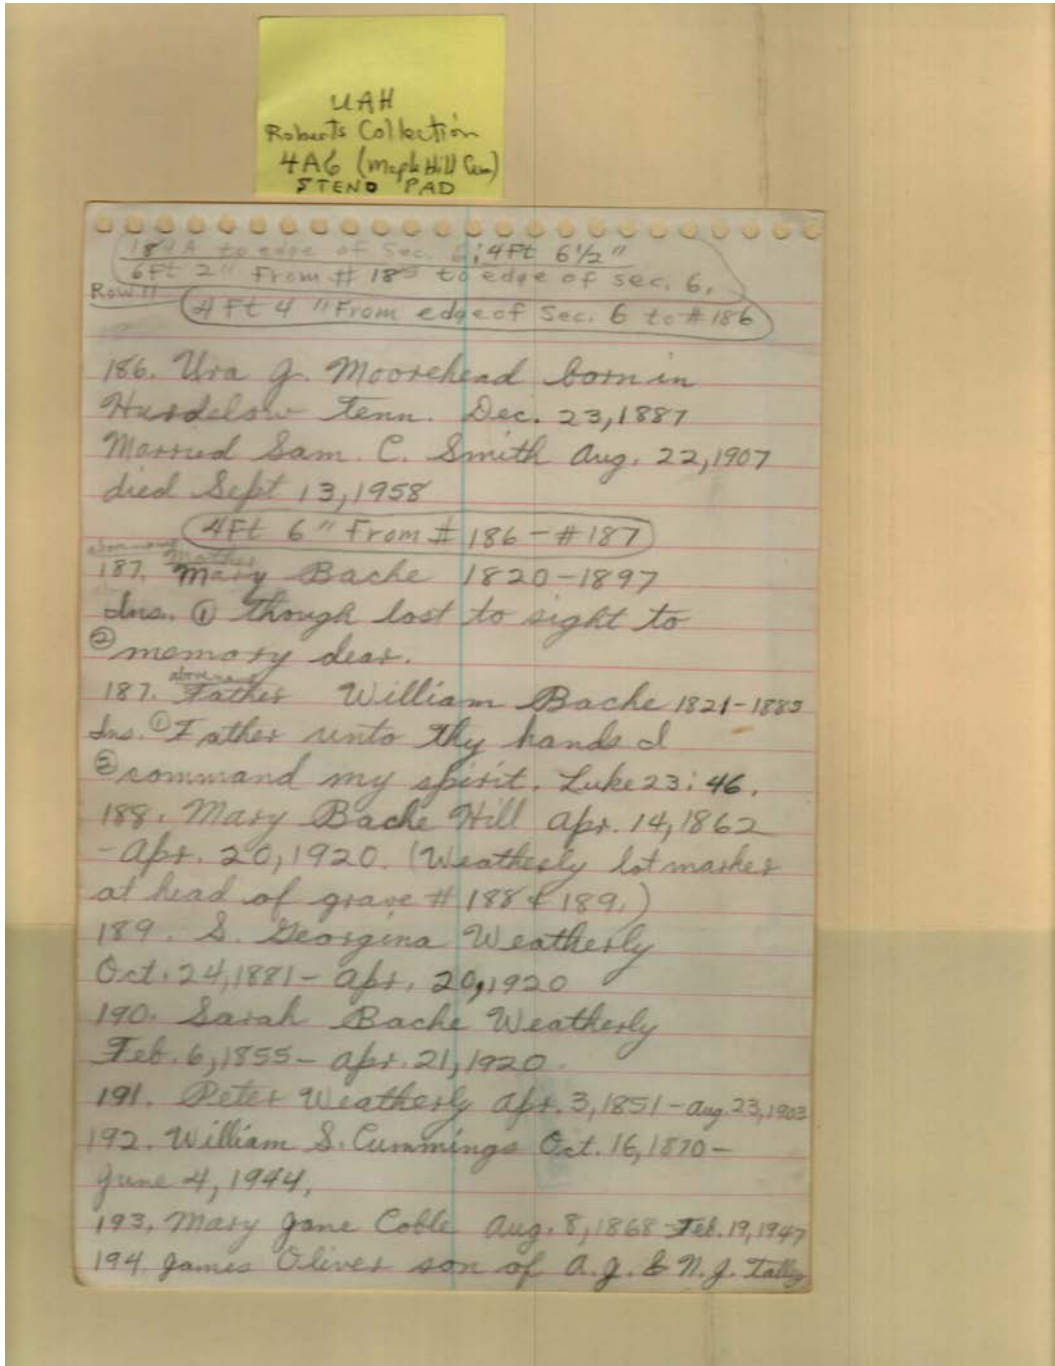 UAH
Roberts Collection
4A6 (Maple Hill Cem)
STENO PAD
184A to edge of Sec. 6; 4Ft 6 1/2"
6Ft 2" From # 185 to edge of sec. 6.
Row 11
4 Ft 4 "From edge of Sec. 6 to # 186
186. Ura J. Moorehead born in
Hurdelow Tenn. Dec. 23, 1887
Married Sam. C. Smith Aug. 22, 1907
died Sept 13, 1958
4Ft 6 " From # 186 - # 187
above name Mother
187. Mary Bache 1820-1897
Ins. ① Though lost to sight to
② memory dear.
above name
187. Father William Bache 1821-1885
Ins. ① Father unto thy hands I
② command my spirit. Luke 23:46.
188. Mary Bache Hill Apr. 14, 1862
- Apr. 20, 1920. (Weatherly lot marker
at head of grave # 188 & 189.)
189. S. Georgina Weatherly
Oct. 24, 1881 - Apr. 20, 1920
190. Sarah Bache Weatherly
Feb. 6, 1855 - Apr. 21, 1920.
191. Peter Weatherly Apr. 3, 1851 - Aug. 23, 1903
192. William S. Cummings Oct. 16, 1870 -
June 4, 1944.
193. Mary Jane Coble Aug. 8, 1868 - Feb. 19, 1947
194. James Oliver son of A.J. & N.J. Talley